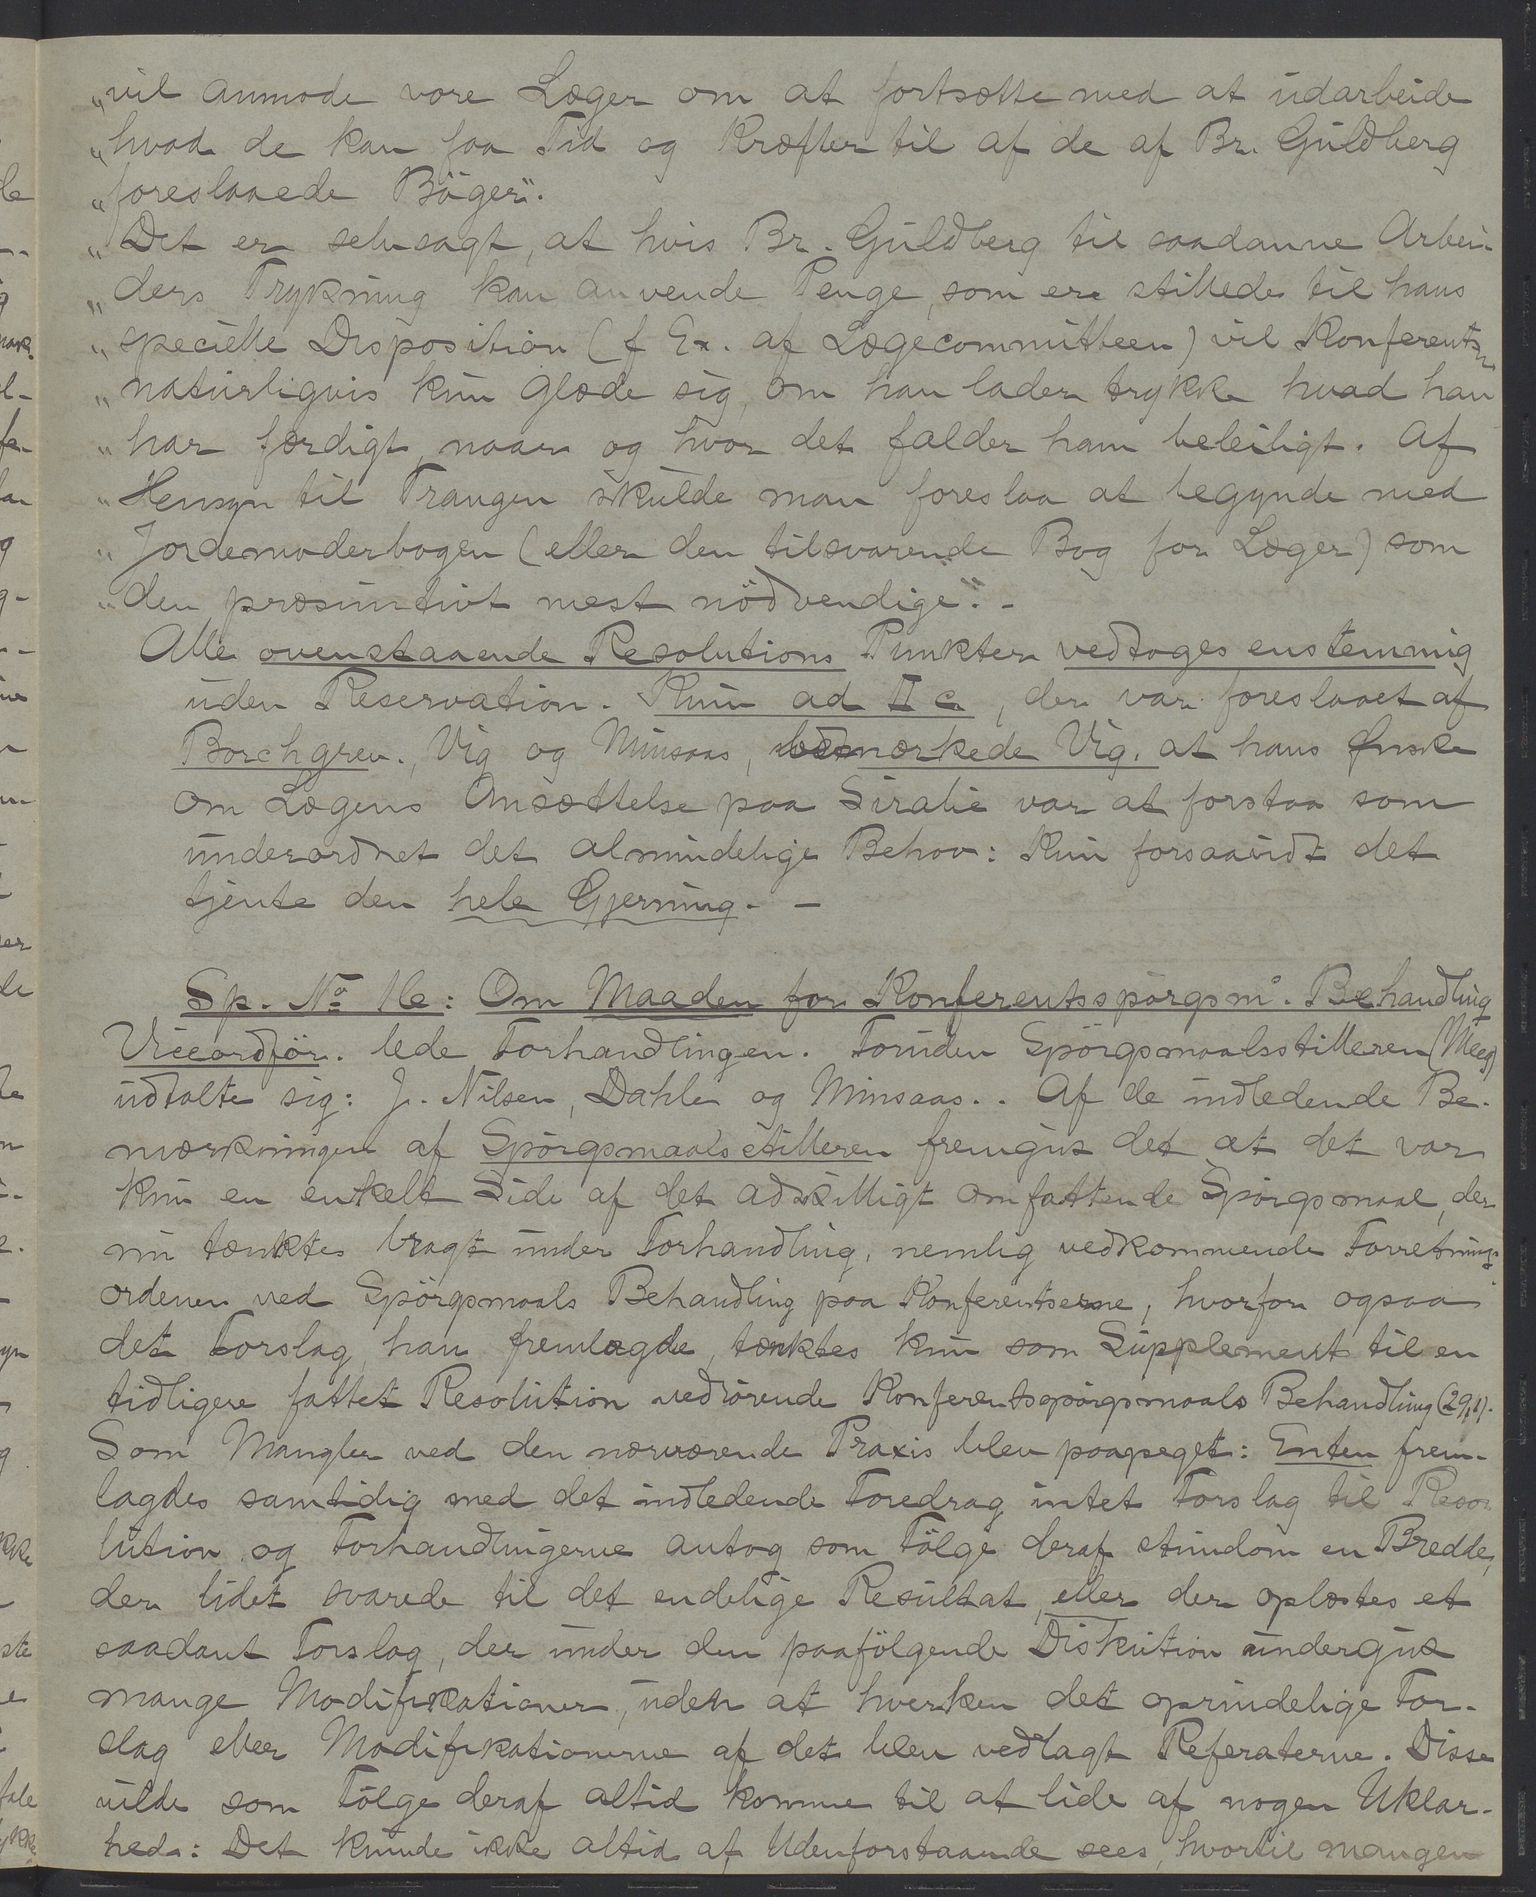 "vil anmode vore Læger om at fortsætte med at udarbeide
"hvad de kan faa Tid og Kræfter til af de af Br. Guldberg
"foreslaaede Böger".
"Det er selvsagt, at hvis Br. Guldberg til saadanne Arbei-
"ders Trykning kan anvende Penge, som ere stillede til hans
"specielle Disposition (f Ex. af Lægecommitteen) vil Konferentsen
"naturligvis kun glæde sig, om han lader trykke hvad han
"har færdigt, naar og hvor det falder ham beleiligt. Af
"Hensyn til Trangen skulde man foreslaa at begynde med
"Jordemoderbogen (eller den tilsvarende Bog for Læger) som
"den præsumtivt mest nödvendige". -
Alle ovenstaaende Resolutions Punkter vedtoges enstemmig
uden Reservation. Kun ad II c, der var foreslaaet af
Borchgrev., Vig og Minsaas, bemærkede Vig. at hans Ønske
om Lægens Ansættelse paa Sirabe var at forstaa som
underordnet det almindelige Behov: Kun forsaavidt det
tjente den hele Gjerning. -
Sp. No 16: Om Maaden for Konferentsspörgsm. Behandling
Viceordför. lede Forhandlingen. Foruden Spörgsmaalsstilleren (Meeg)
udtalte sig: J. Nilsen, Dahle og Minsaas.. Af de indledende Be-
mærkninger af Spörgsmaalsstilleren fremgik det at det var
kun en enkelt Side af det adskilligt omfattende Spörgsmaal, der
nu tænktes bragt under Forhandling, nemlig vedkommende Forretnings-
ordenen ved Spörgsmaals Behandling paa Konferentserne, hvorfor ogsaa
det Forslag, han fremlagde, tænktes kun som Supplement til en
tidligere fattet Resolution vedrörende Konferentsspörgsmaals Behandling
Som Mangler ved den nærværende Praxis blev paapeget: Enten frem-
lagdes samtidig med det indledende Foredrag intet Forslag til Reso-
lution og Forhandlingerne antog som Fölge deraf stundom en Bredde,
der lidet svarede til det endelige Resultat, eller der oplæstes et
saadant Forslag, der under den paafölgende Diskution undergik
mange Modifikationer, uden at hverken det oprindelige For-
slag eller Modifikationerne af det blev vedlagt Referaterne. Disse
vilde som Fölge deraf altid komme til at lide af nogen Uklar-
hed: Det kunde ikke altid af Udenforstaaende sees, hvortil mangen